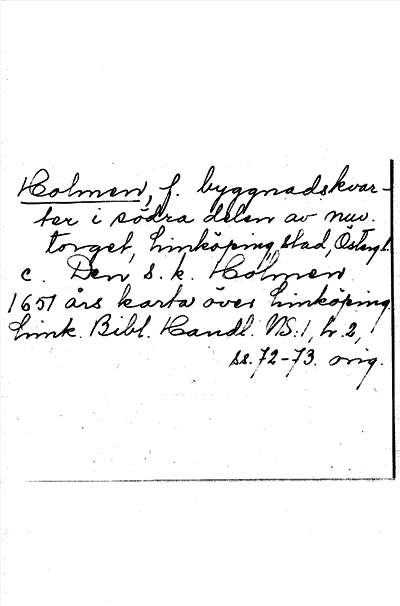 Holmen, f. byggnadskvar-
ter i södra delen av nuv.
torget, Linköping, stad, Östergl.
c. Den s. k. Holmen
1651 års karta över Linköping.
Link. Bibl. Handl. NS:1, h. 2,
ss. 72-73. orig.